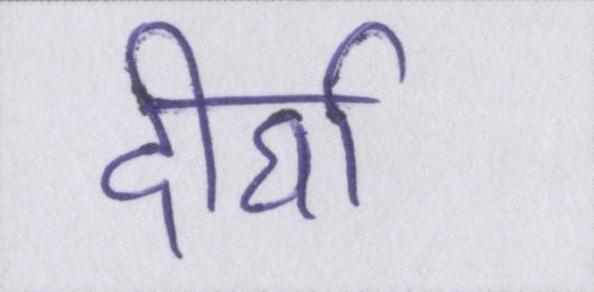 दीर्घा